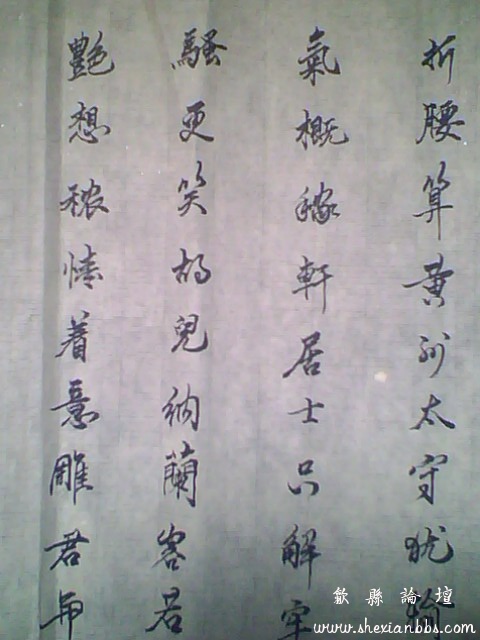 折腰算黄州太守犹輸
氣概稼軒居士只解牢
騷更笑胡兒納蘭容若
艷想秾情着意雕君不
歙縣論壇
www.shexianbbs.com